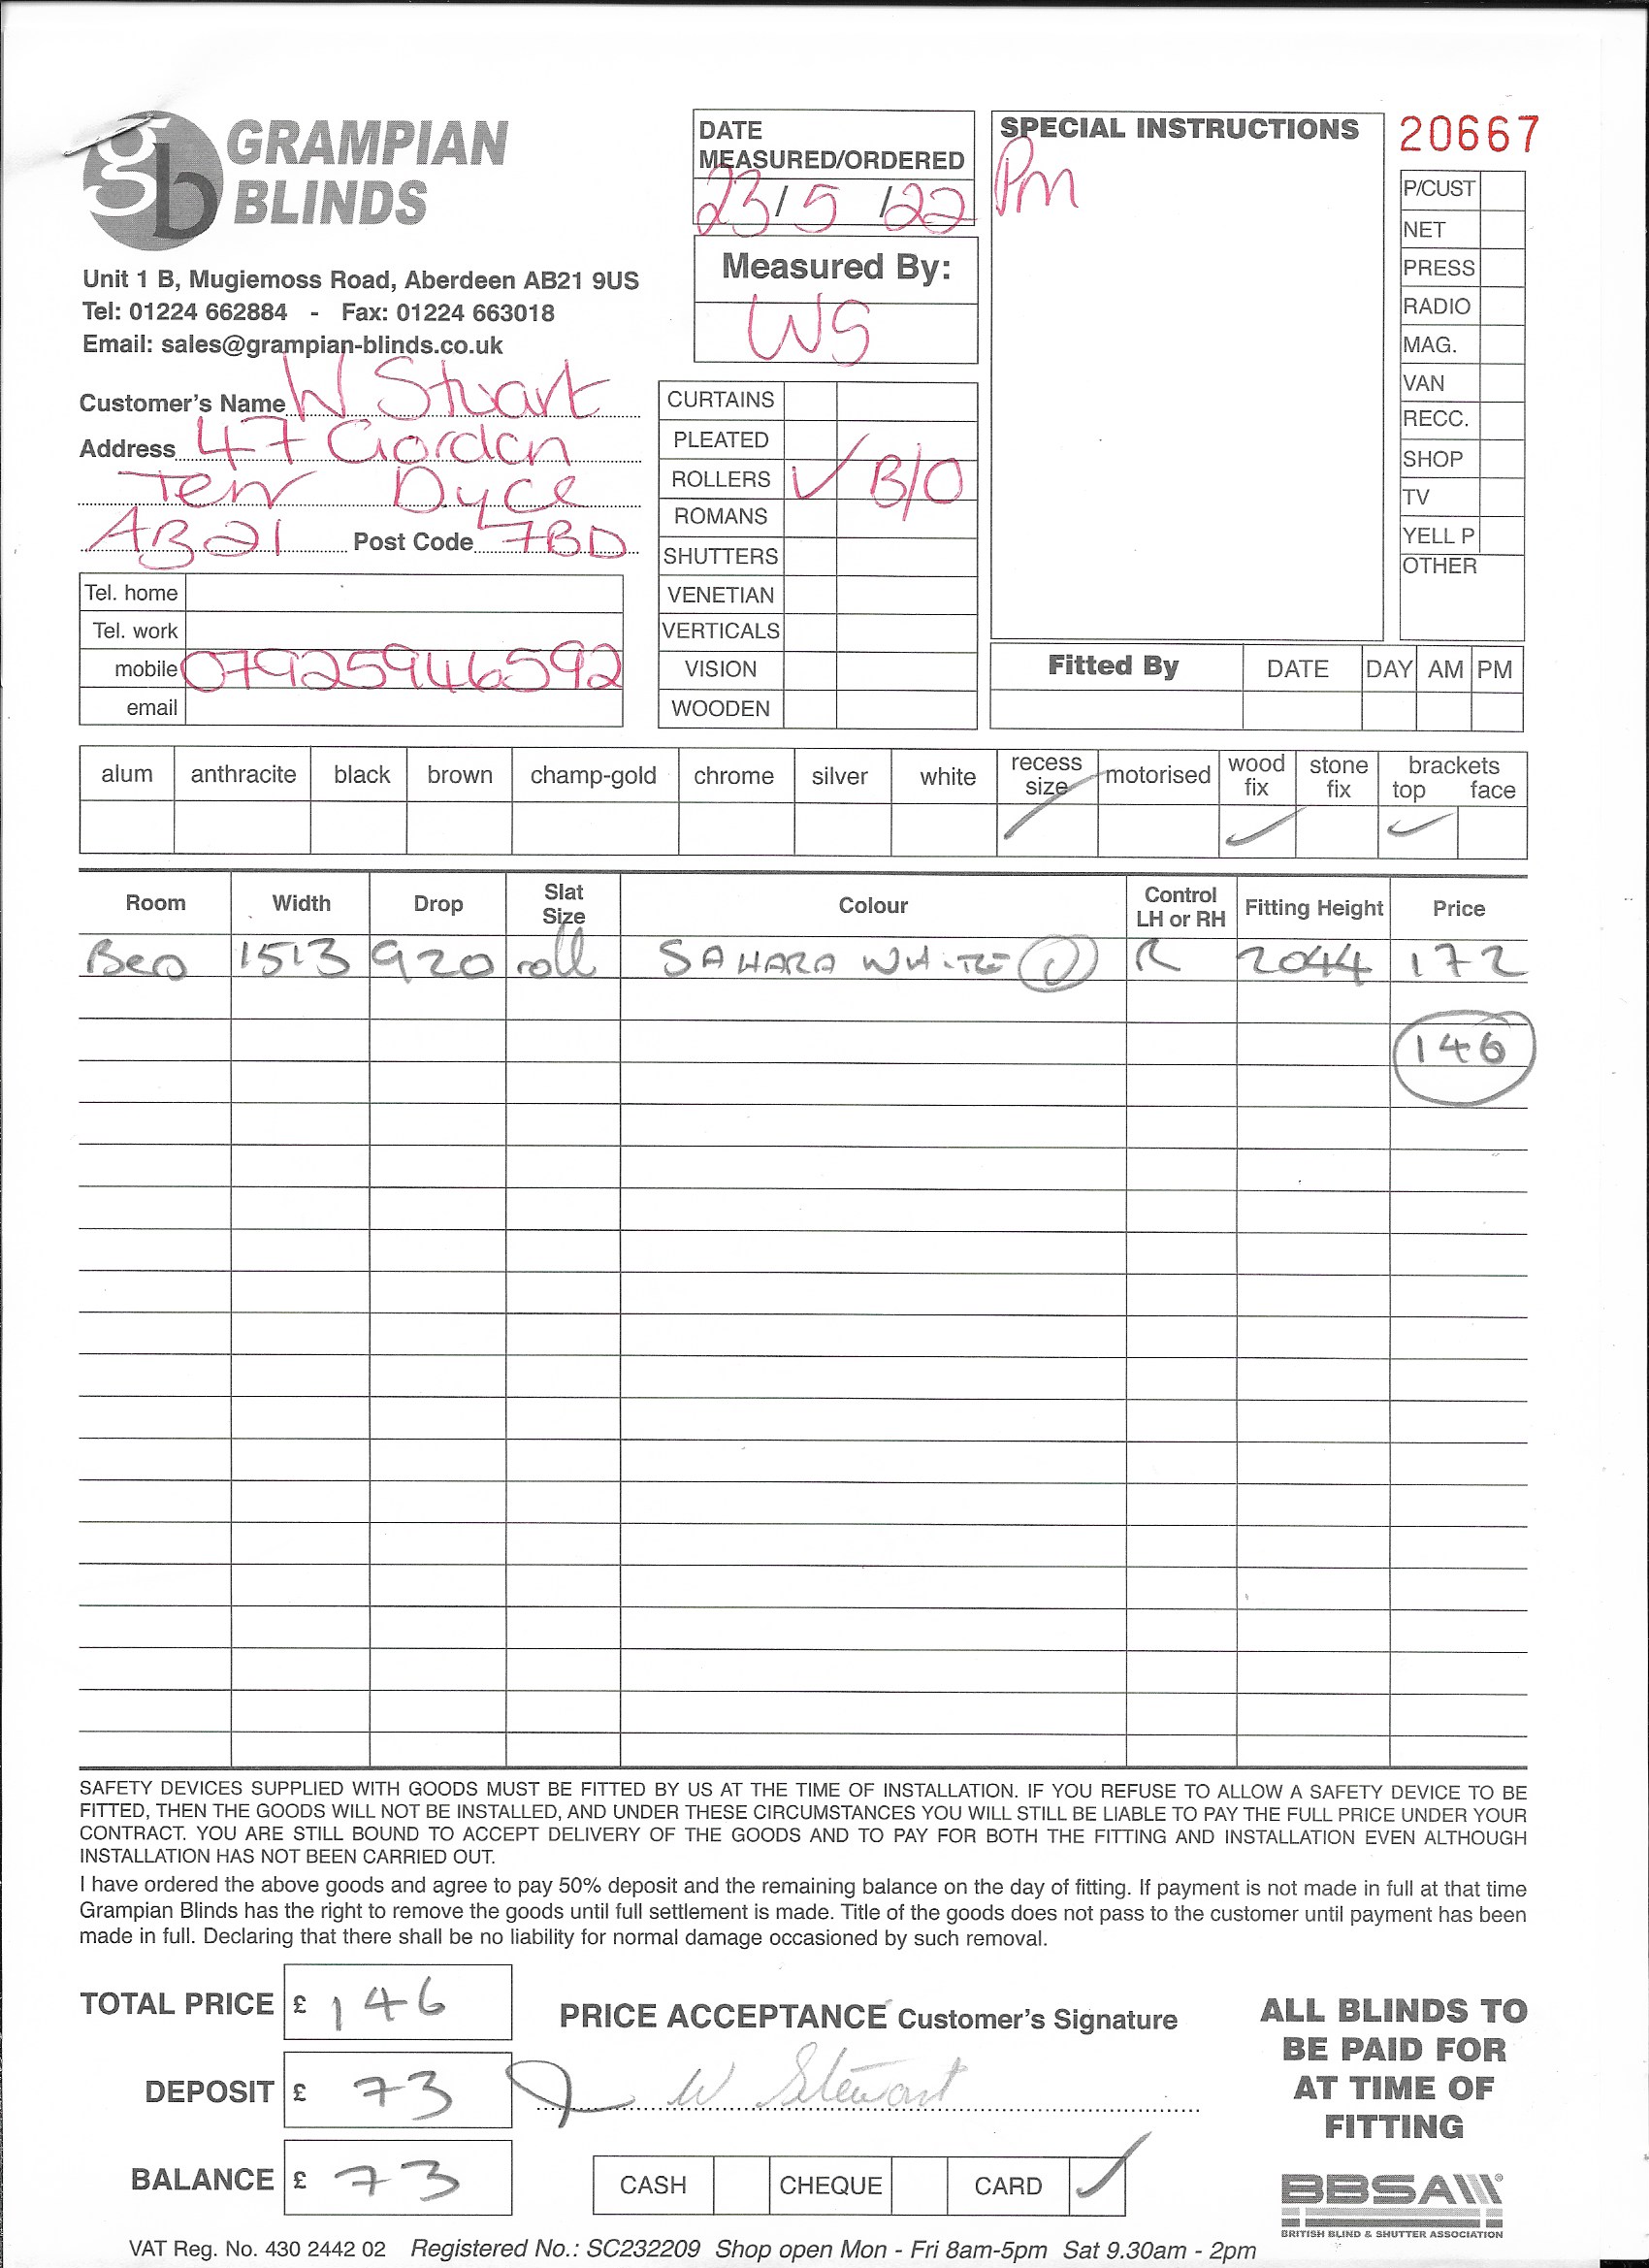 gb GRAMPIAN
BLINDS
Unit 1 B, Mugiemoss Road, Aberdeen AB21 9US
Tel: 01224 662884 - Fax: 01224 663018
Email: sales@grampian-blinds.co.uk
Customer's Name W Stuart
Address 47 Gordon
Terr Dyce
AB21 Post Code 7BD
Tel. home
Tel. work
mobile 07925946592
email
DATE
MEASURED/ORDERED
23/5/22
Measured By:
WS
CURTAINS
PLEATED
ROLLERS ✓ B/O
ROMANS
SHUTTERS
VENETIAN
VERTICALS
VISION
WOODEN
SPECIAL INSTRUCTIONS
Pm
20667
P/CUST
NET
PRESS
RADIO
MAG.
VAN
RECC.
SHOP
TV
YELL P
OTHER
Fitted By DATE DAY AM PM
alum anthracite black brown champ-gold chrome silver white recess size motorised wood fix stone fix brackets top face
✓ ✓ ✓
Room Width Drop Slat Size Colour Control LH or RH Fitting Height Price
Bed 1513 920 roll SAHARA WHITE R 2044 172
146
SAFETY DEVICES SUPPLIED WITH GOODS MUST BE FITTED BY US AT THE TIME OF INSTALLATION. IF YOU REFUSE TO ALLOW A SAFETY DEVICE TO BE
FITTED, THEN THE GOODS WILL NOT BE INSTALLED, AND UNDER THESE CIRCUMSTANCES YOU WILL STILL BE LIABLE TO PAY THE FULL PRICE UNDER YOUR
CONTRACT. YOU ARE STILL BOUND TO ACCEPT DELIVERY OF THE GOODS AND TO PAY FOR BOTH THE FITTING AND INSTALLATION EVEN ALTHOUGH
INSTALLATION HAS NOT BEEN CARRIED OUT.
I have ordered the above goods and agree to pay 50% deposit and the remaining balance on the day of fitting. If payment is not made in full at that time
Grampian Blinds has the right to remove the goods until full settlement is made. Title of the goods does not pass to the customer until payment has been
made in full. Declaring that there shall be no liability for normal damage occasioned by such removal.
TOTAL PRICE £ 146
DEPOSIT £ 73
BALANCE £ 73
PRICE ACCEPTANCE Customer's Signature
W Stewart
CASH CHEQUE CARD ✓
ALL BLINDS TO
BE PAID FOR
AT TIME OF
FITTING
BBSA
BRITISH BLIND & SHUTTER ASSOCIATION
VAT Reg. No. 430 2442 02 Registered No.: SC232209 Shop open Mon - Fri 8am-5pm Sat 9.30am - 2pm